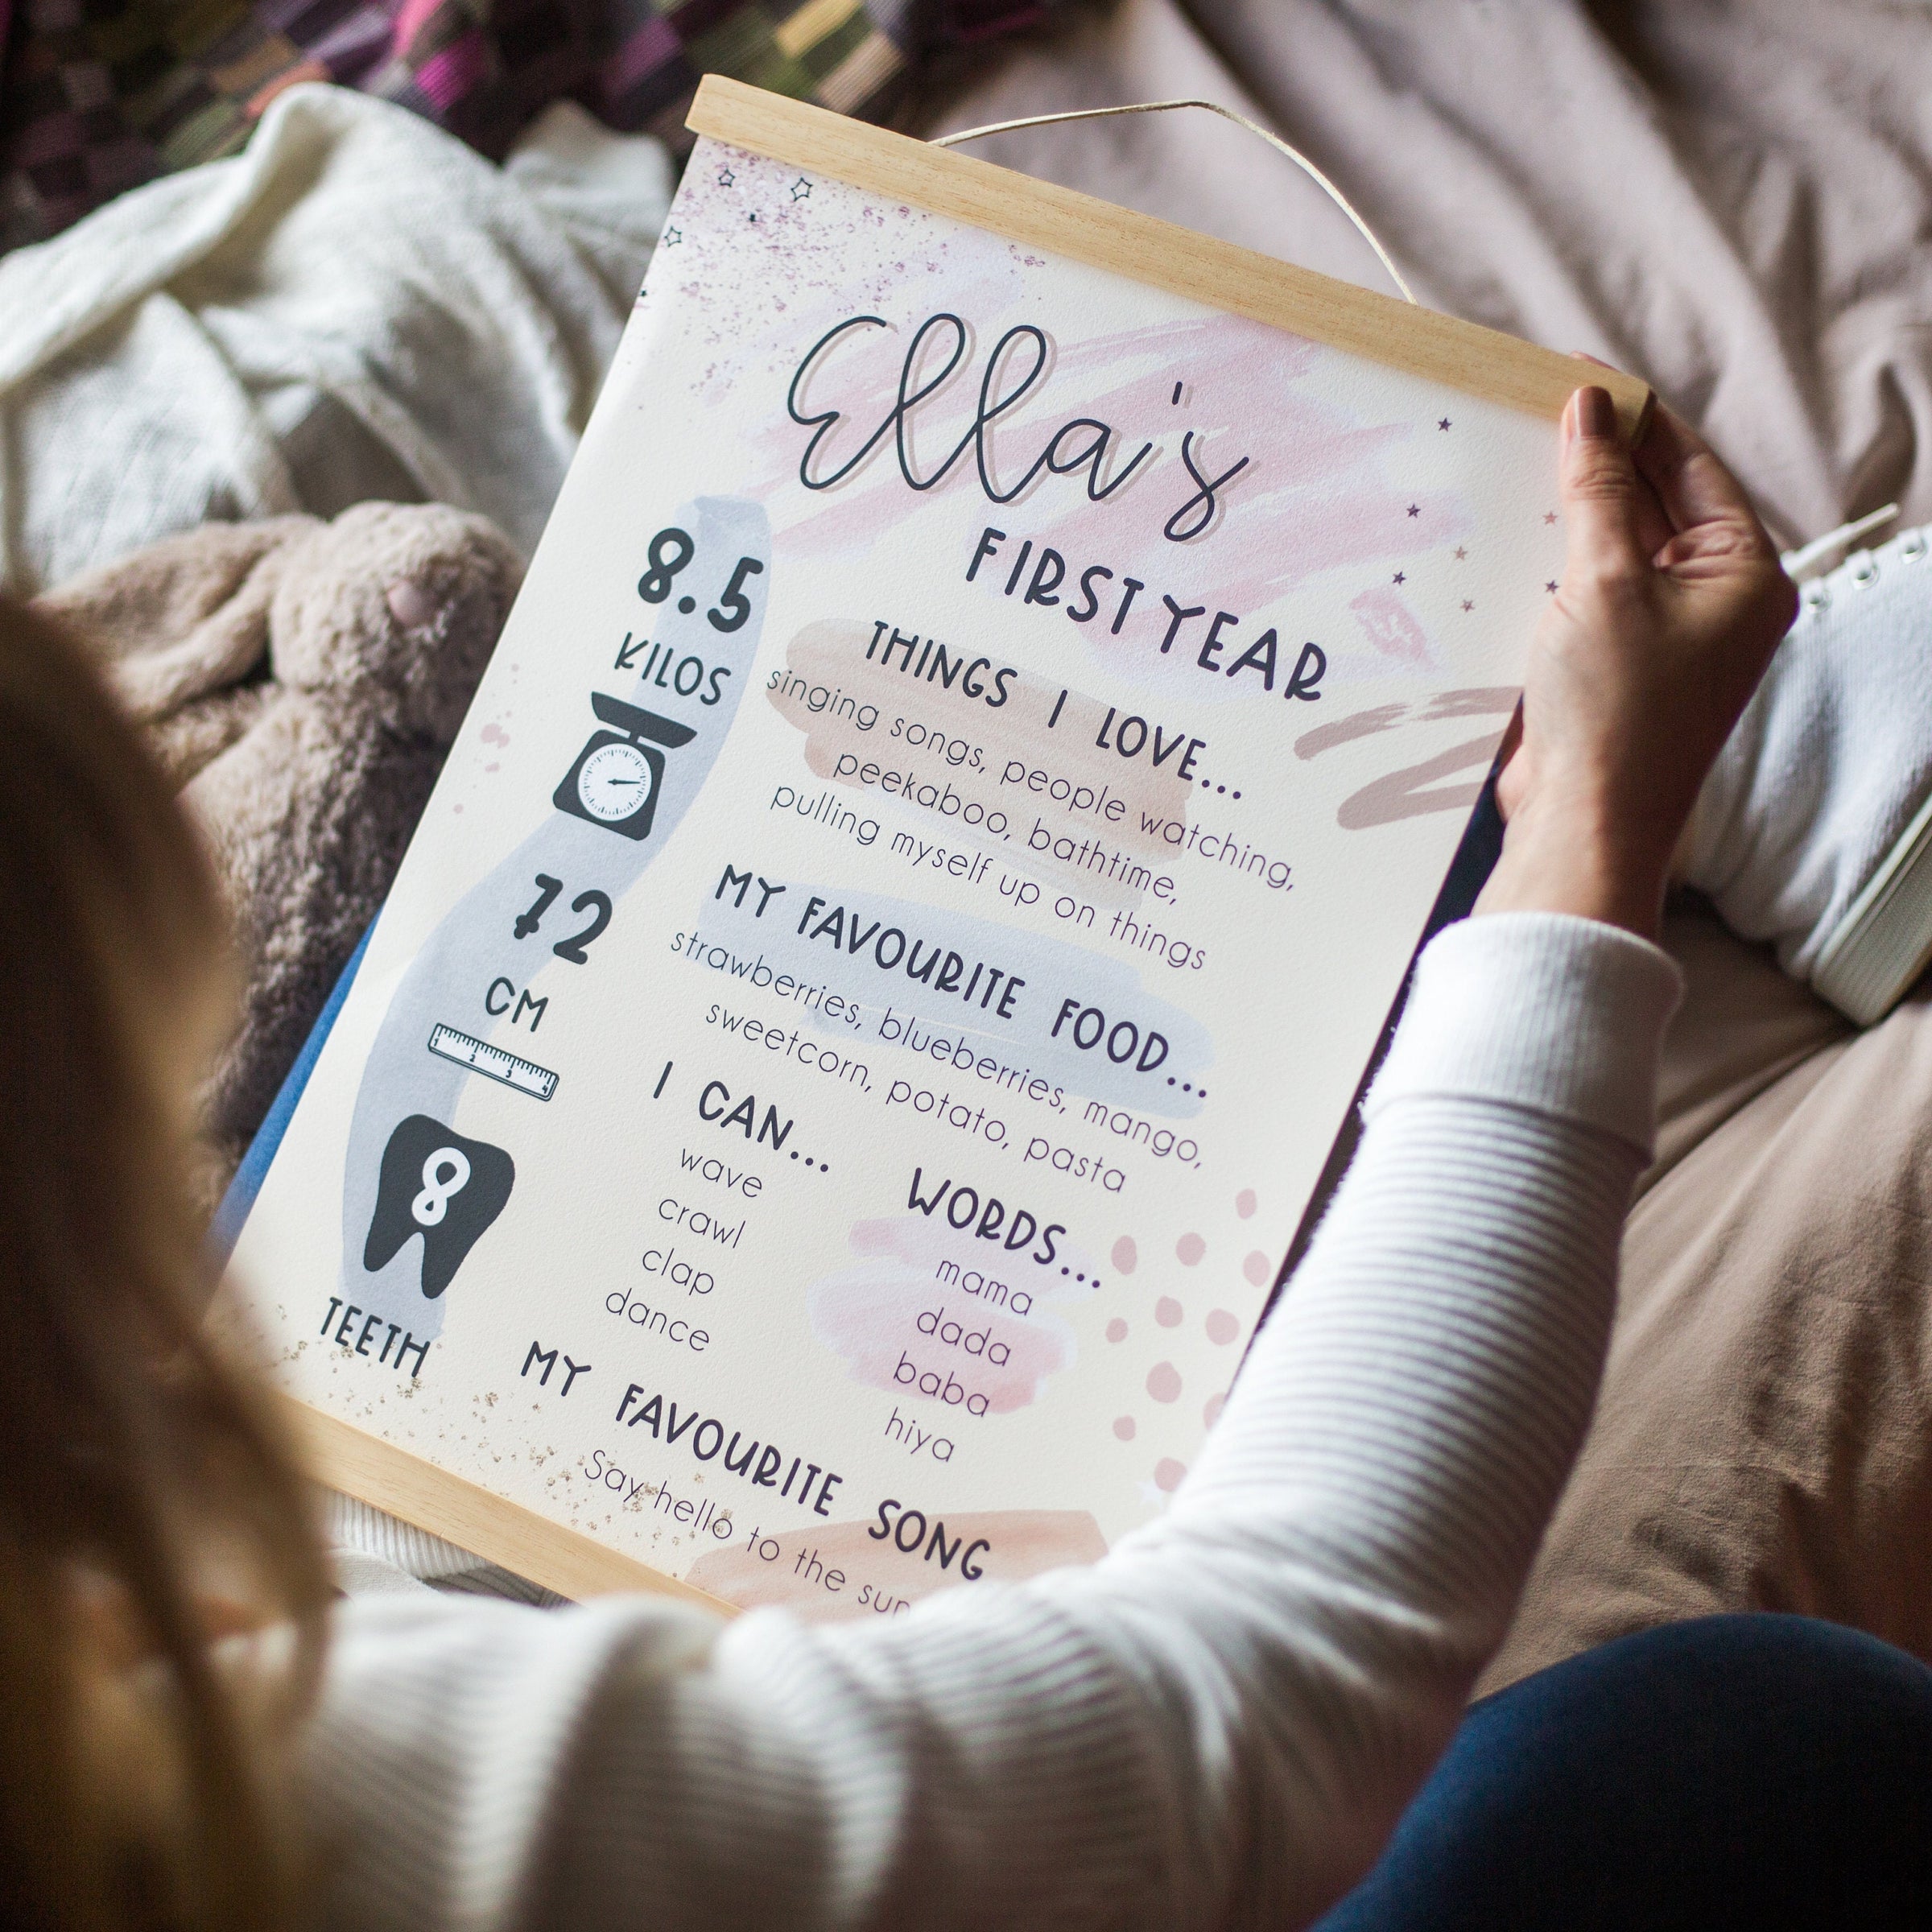 Ella's
FIRST YEAR
8.5
KILOS
72
CM
1 2 3 4
8
TEETH
THINGS I LOVE...
singing songs, people watching,
peekaboo, bathtime,
pulling myself up on things
MY FAVOURITE FOOD...
strawberries, blueberries, mango,
sweetcorn, potato, pasta
I CAN...
wave
crawl
clap
dance
WORDS...
mama
dada
baba
hiya
MY FAVOURITE SONG
Say hello to the